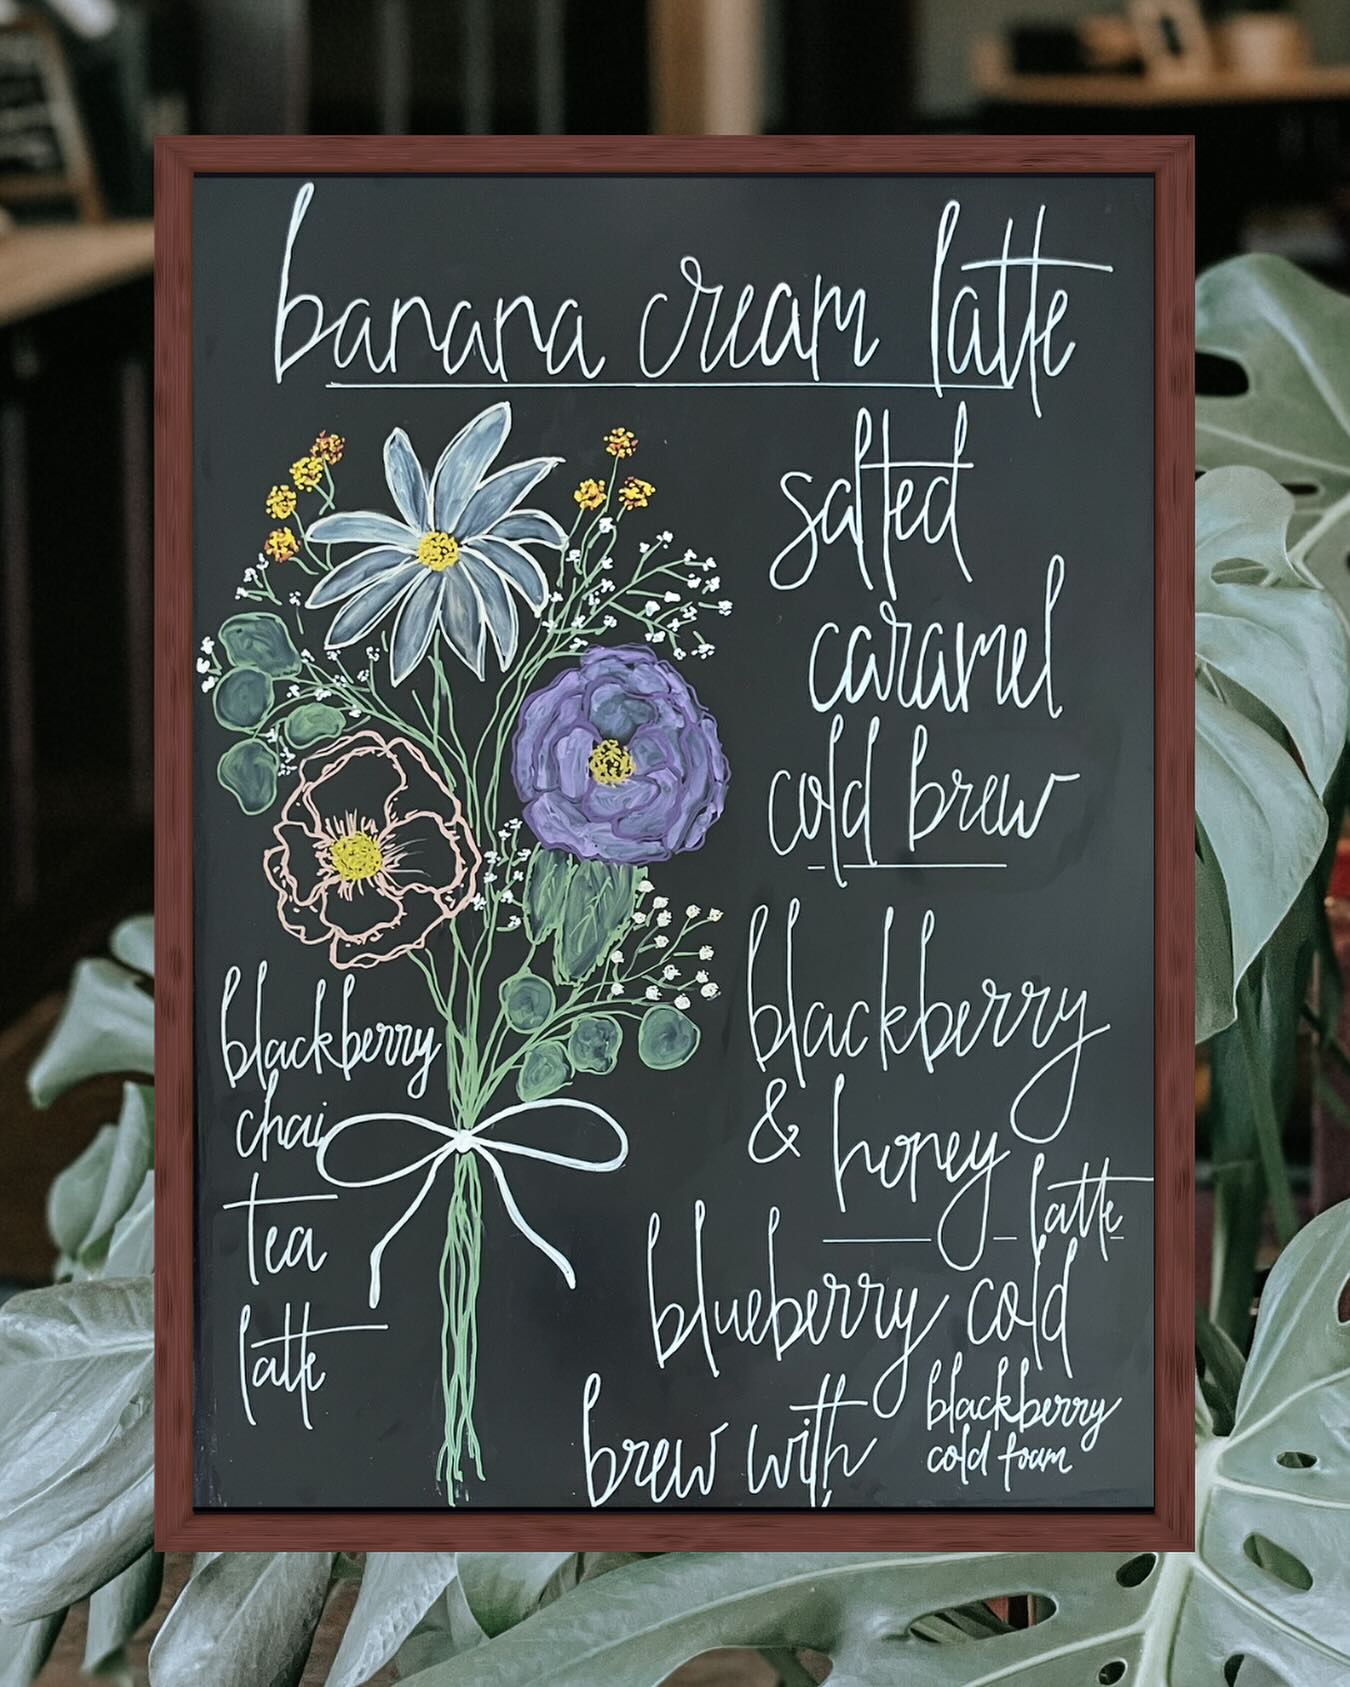 banana cream latte
salted
caramel
cold brew
blackberry
& honey
latte
blueberry cold
brew with
blackberry
cold foam
blackberry
chai
tea
latte